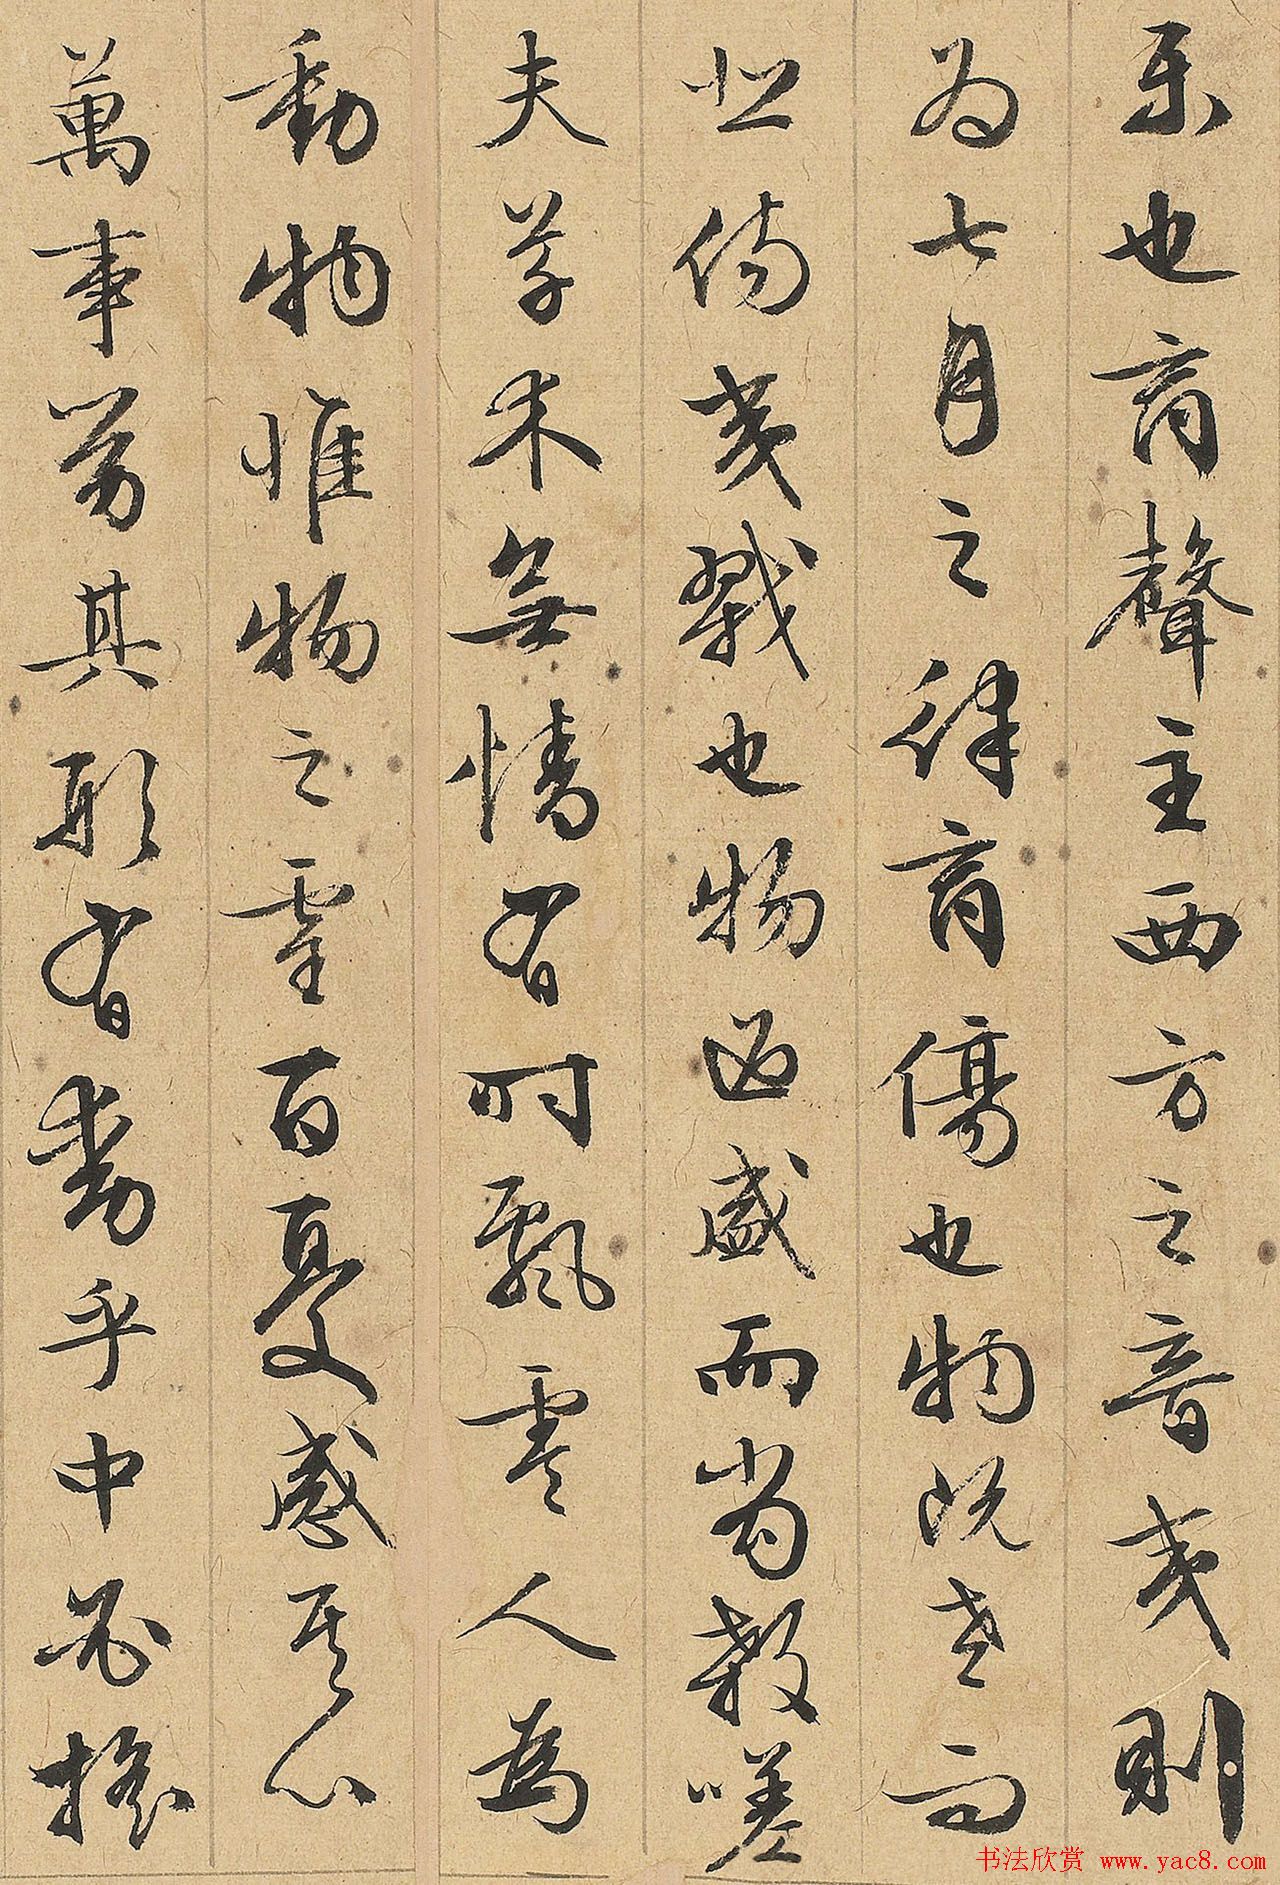 樂也商聲主西方之音夷則
為七月之律商傷也物既老而
悲傷夷戮也物過盛而當殺嗟
夫草木無情有時飄零人為
動物惟物之靈百憂感其心
萬事勞其形有動乎中必搖
书法欣赏 www.yac8.com